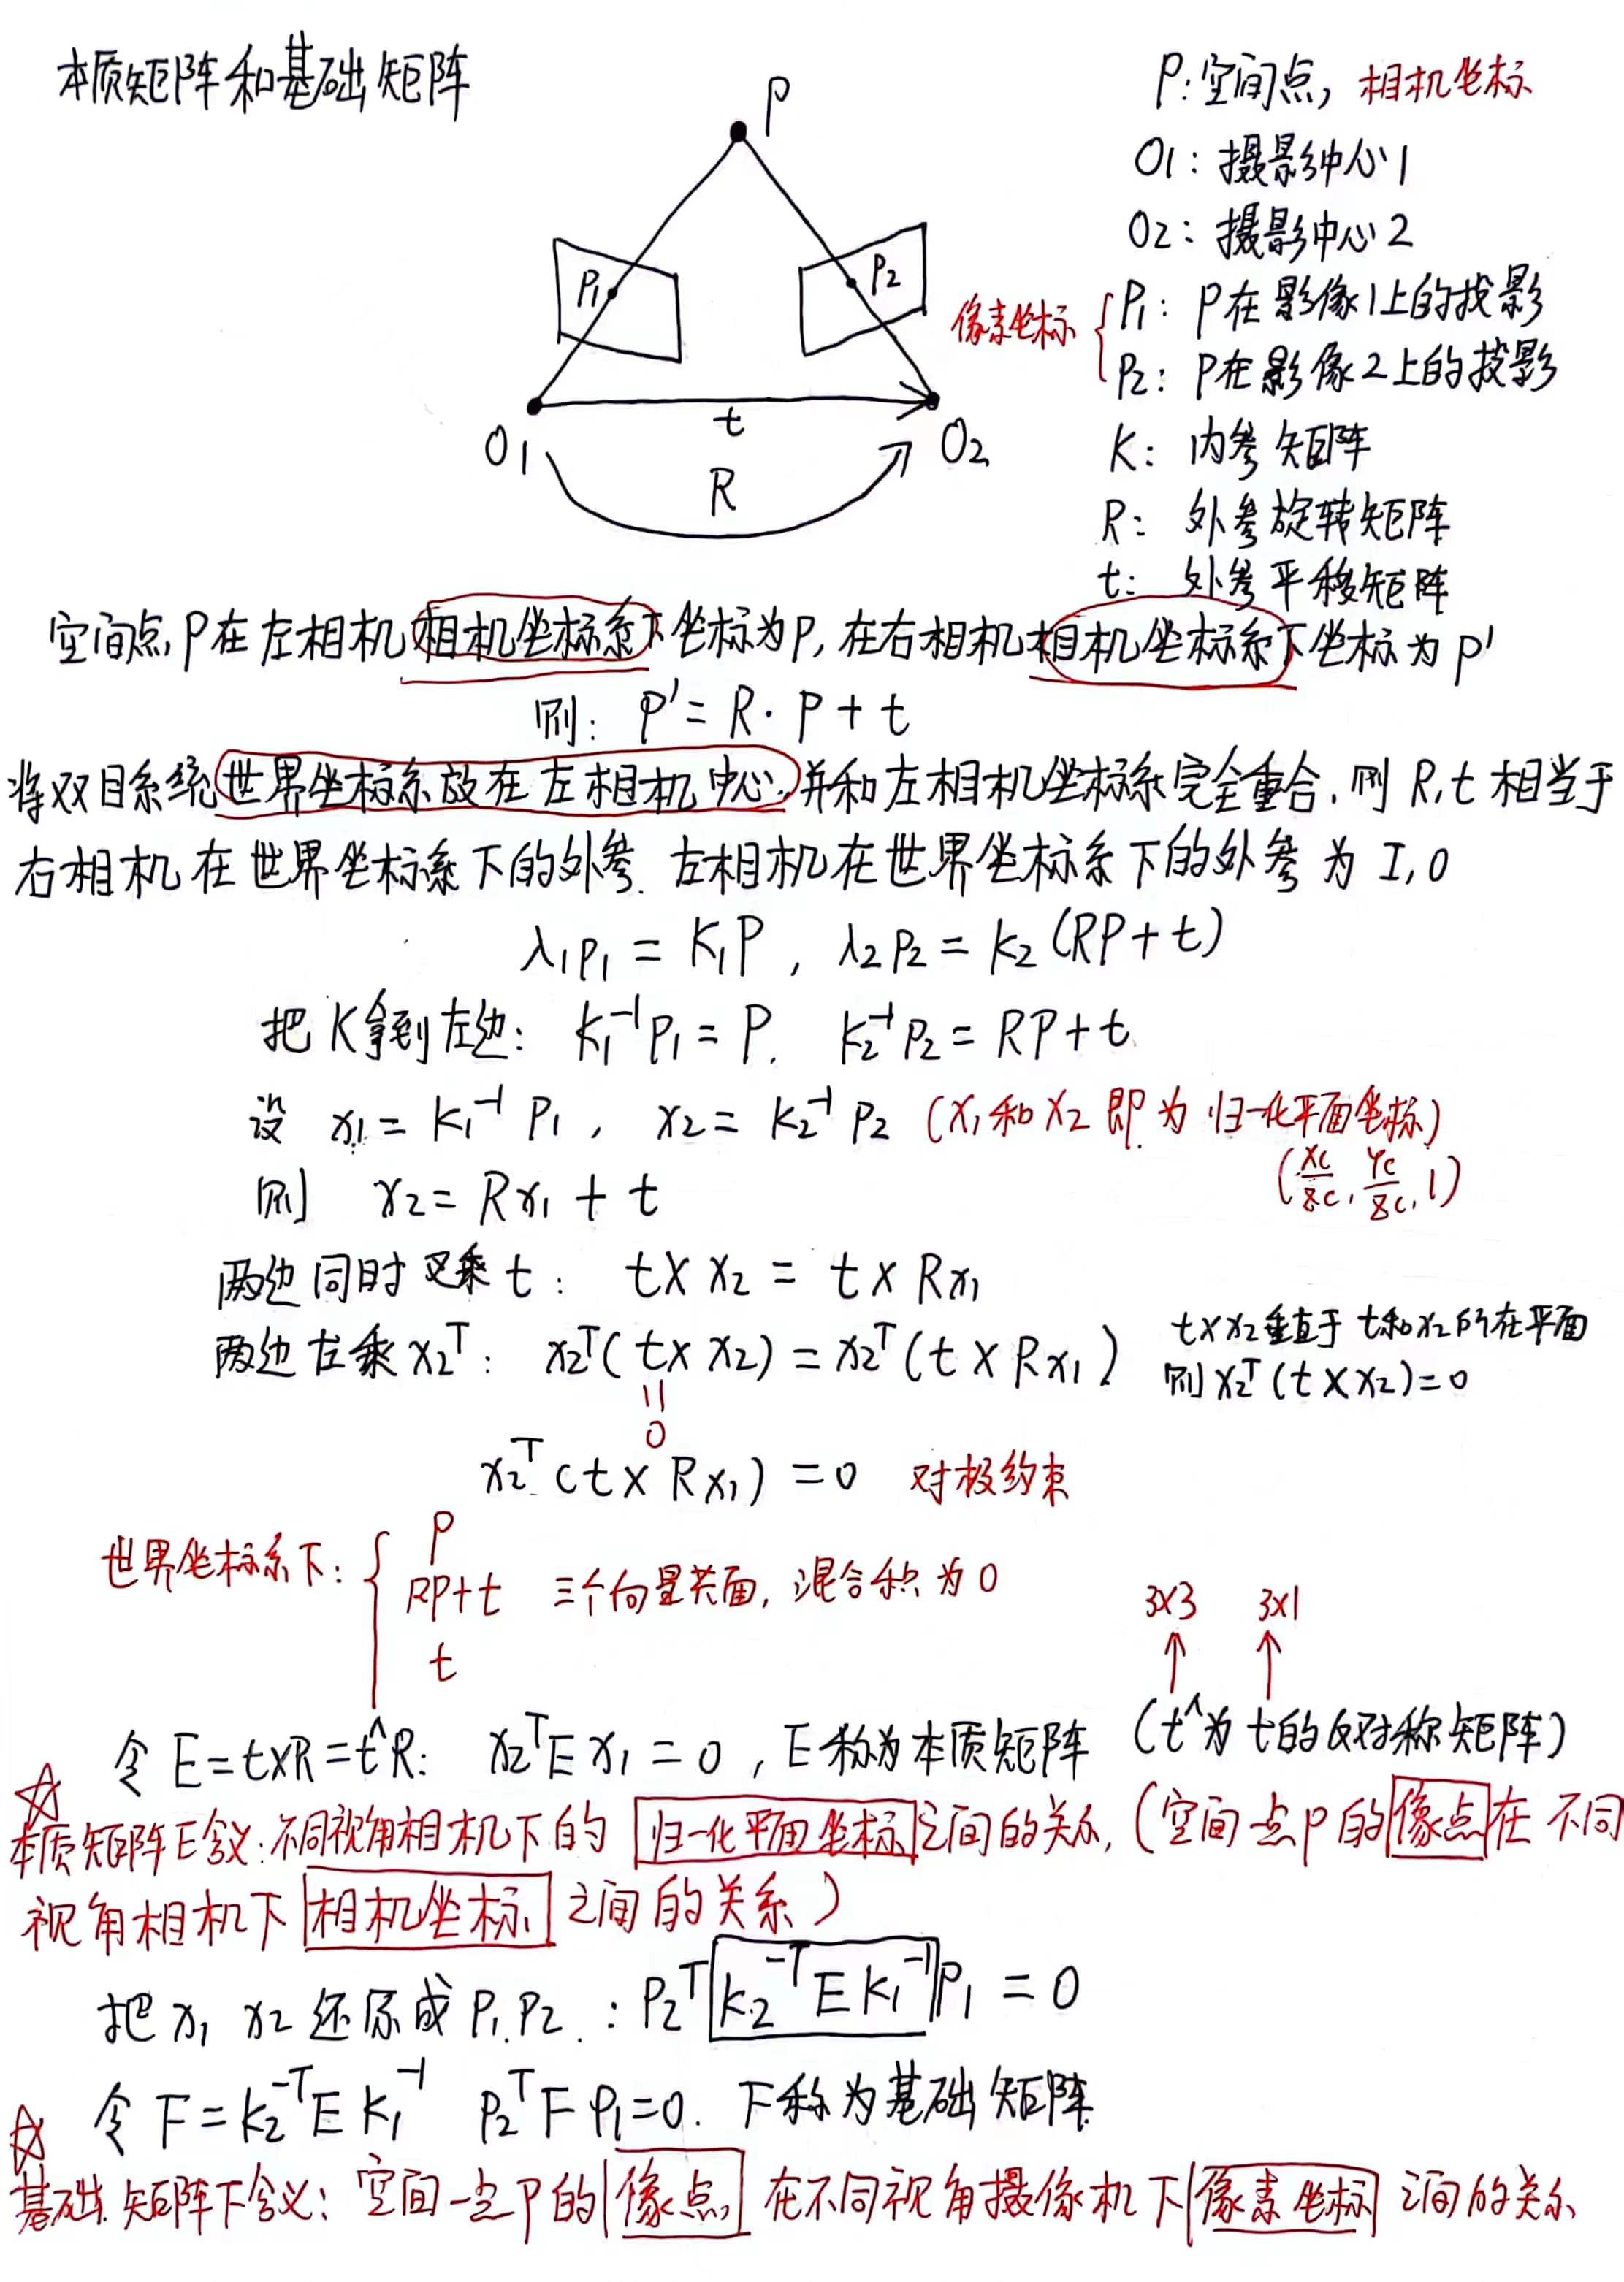 本质矩阵和基础矩阵
P
P₁
P₂
O₁
t
O₂
R
P:空间点, 相机坐标
O1: 摄影中心1
O2: 摄影中心2
像素坐标
P₁: P在影像1上的投影
P₂: P在影像2上的投影
K: 内参矩阵
R: 外参旋转矩阵
t: 外参平移矩阵
空间点P在左相机相机坐标系下坐标为P,在右相机相机坐标系下坐标为P'
则: P'=R·P+t
将双目系统世界坐标系放在左相机中心,并和左相机坐标系完全重合,则R,t相当于
右相机在世界坐标系下的外参.左相机在世界坐标系下的外参为I,0
λ₁P₁=K₁P, λ₂P₂=K₂(RP+t)
把K拿到左边: K₁⁻¹P₁=P. K₂⁻¹P₂=RP+t
设 x₁=K₁⁻¹P₁, x₂=K₂⁻¹P₂ (x₁和x₂即为归一化平面坐标)
(Xc/Zc, Yc/Zc, 1)
则 x₂=Rx₁+t
两边同时叉乘t: t×x₂=t×Rx₁
两边左乘x₂ᵀ: x₂ᵀ(t×x₂)=x₂ᵀ(t×Rx₁)
t×x₂垂直于t和x₂所在平面
则x₂ᵀ(t×x₂)=0
=
0
x₂ᵀ(t×Rx₁)=0 对极约束
世界坐标系下:
P
RP+t 三个向量共面,混合积为0
t
3×3 3×1
令E=t×R=t^R: x₂ᵀEx₁=0, E称为本质矩阵 (t^为t的反对称矩阵)
☆
本质矩阵E含义:不同视角相机下的归一化平面坐标之间的关系,(空间一点P的像点在不同
视角相机下相机坐标之间的关系)
把x₁ x₂还原成P₁.P₂.: P₂ᵀK₂⁻ᵀEK₁⁻¹P₁=0
令F=K₂⁻ᵀEK₁⁻¹ P₂ᵀFP₁=0. F称为基础矩阵
☆
基础矩阵F含义: 空间一点P的像点在不同视角摄像机下像素坐标之间的关系